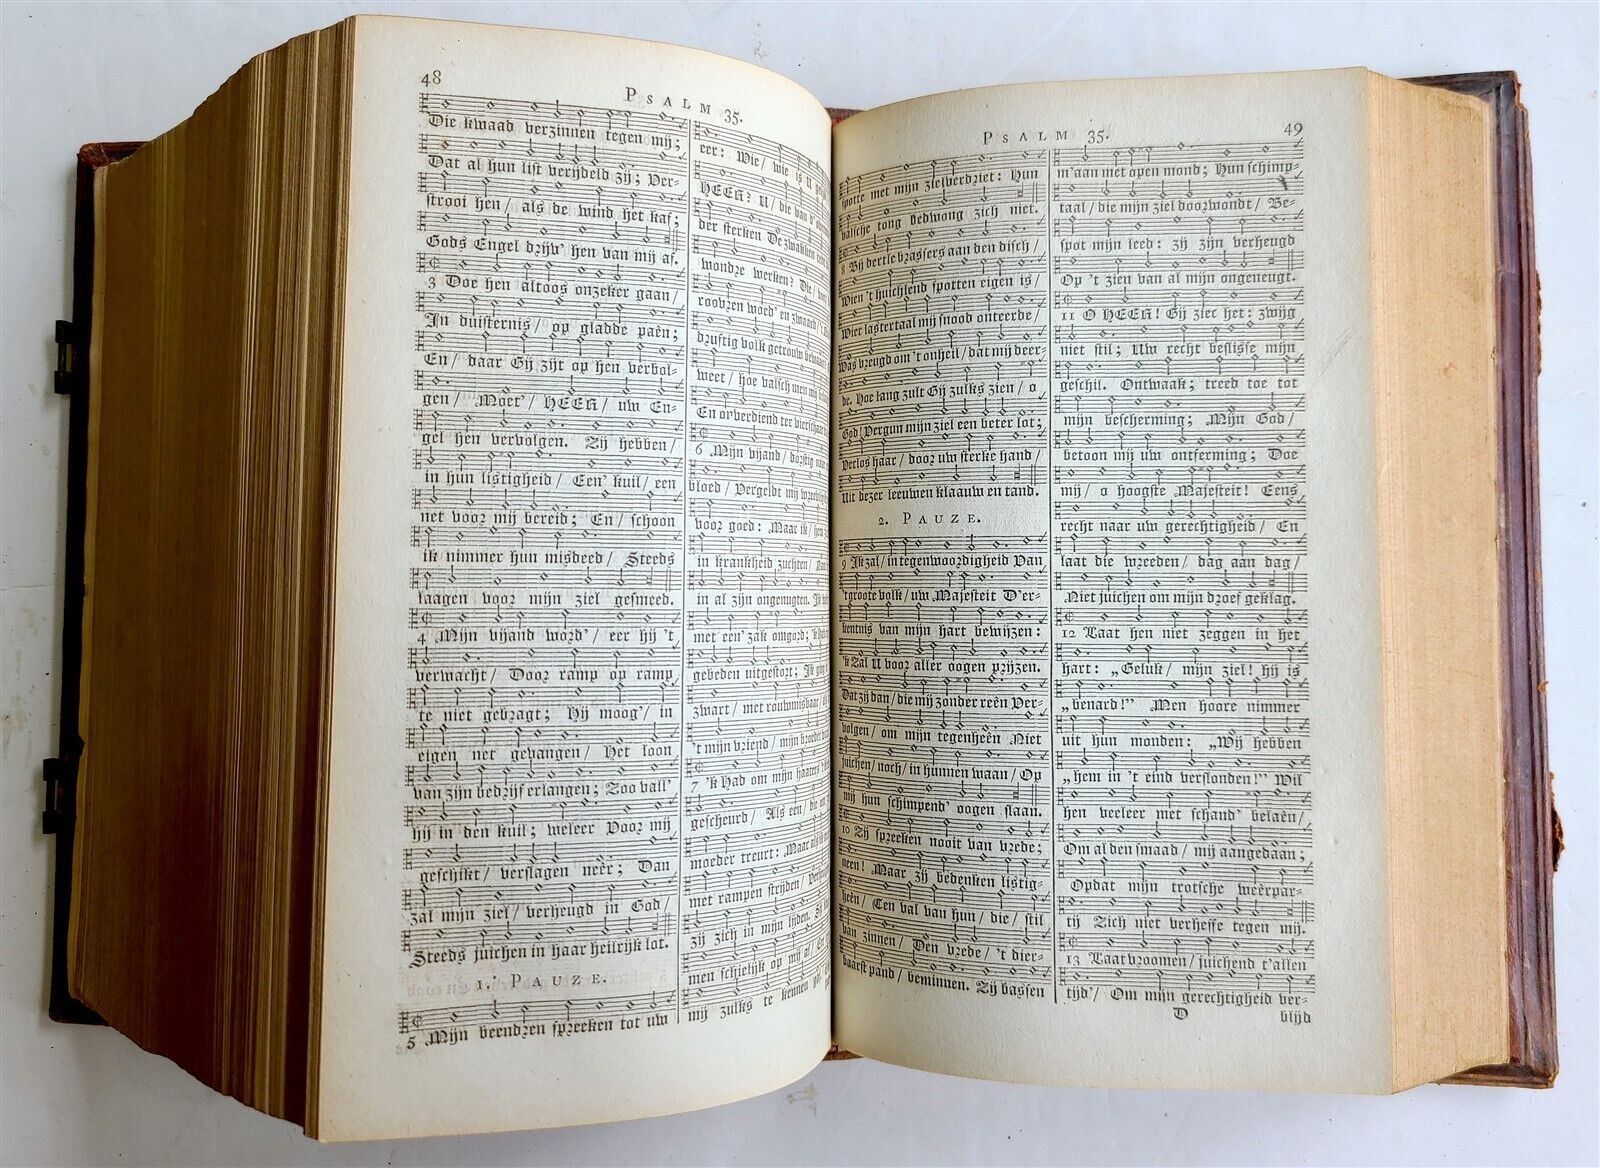 48
PSALM 35.
Die kwaad verzinnen tegen mij;
Dat al hun list verijdeld zij; Ver-
strooi hen/ als de wind het kaf;
Gods Engel drijv' hen van mij af.
3 Doe hen altoos onzeker gaan/
In duisternis/ op gladde paên;
En/ daar Gij zijt op hen verbol-
gen/ Moet'/ HEER/ uw En-
gel hen vervolgen. Zij hebben/
in hun listigheid/ Een' kuil/ een
net voor mij bereid; En/ schoon
ik nimmer hun misdeed/ Steeds
laagen voor mijn ziel gesmeed.
4 Mijn vijand word'/ eer hij 't
verwacht/ Door ramp op ramp
te niet gebragt; Hij moog'/ in
eigen net gevangen/ Het loon
van zijn bedrijf erlangen; Zoo vall'
hij in den kuil; weleer Voor mij
geschikt/ verslagen neêr; Dan
zal mijn ziel/ verheugd in God/
Steeds juichen in haar heilrijk lot.
1. PAUZE.
5 Mijn beendren spreeken tot uw
eer: Wie/ wie is U
HEER? U/ die van
der sterken De zwakken
wondre werken? Die/
roovren woed' en zwaard/
druftig volk getrouw
weet/ hoe valsch men mij
En onverdiend ter vierschaar
6 Mijn vijand/ dorstig naar
bloed/ Vergeldt mij
voor goed: Maar ik/
in krankheid zuchten/
in al zijn ongenugten.
met een' zak omgord;
gebeden uitgestort; Ik ging
zwart/ met rouwmisbaar/
't mijn vriend/ mijn broeder
7 'k Had om mijn haarer
gescheurd/ Als een/ die
moeder treurt: Maar als
met rampen strijden/
zij zich in mijn lijden.
men schielijk op mij af/
mij zulks te kennen
PSALM 35. 49
spotte met mijn zielverdriet: Hun
valsche tong bedwong zich niet.
8 Bij dertle brassers aan den disch/
Wien 't huichlend spotten eigen is/
Wier lastertaal mij snood onteerde/
Was vreugd om 't onheil/ dat mij deer-
de. Hoe lang zult Gij zulks zien/ o
God! Vergun mijn ziel een beter lot;
Verlos haar/ door uw sterke hand/
Uit dezer leeuwen klaauw en tand.
2. PAUZE.
9 Ik zal/ in tegenwoordigheid Van
't groote volk/ uw Majesteit D'er-
kentnis van mijn hart bewijzen:
'k Zal U voor aller oogen prijzen.
Dat zij dan/ die mij zonder reên Ver-
volgen/ om mijn tegenheên Niet
juichen/ noch/ in hunnen waan/ Op
mij hun schimpend' oogen slaan.
10 Zij spreeken nooit van vrede;
neen! Maar zij bedenken listig-
heên/ Een val van hun/ die/ stil
van zinnen/ Den vrede/ 't dier-
baarst pand/ beminnen. Zij bassen
m'aan met open mond; Hun schimp-
taal/ die mijn ziel doorwondt/ Be-
spot mijn leed: zij zijn verheugd
Op 't zien van al mijn ongeneugt.
11 O HEER! Gij ziet het: zwijg
niet stil; Uw recht beslisse mijn
geschil. Ontwaak; treed toe tot
mijn bescherming; Mijn God/
betoon mij uw ontferming; Doe
mij/ o hoogste Majesteit! Eens
recht naar uw gerechtigheid/ En
laat die wreeden/ dag aan dag/
Niet juichen om mijn droef geklag.
12 Laat hen niet zeggen in het
hart: „Geluk/ mijn ziel! hij is
„benard!” Men hoore nimmer
uit hun monden: „Wij hebben
„hem in 't eind verslonden!” Wil
hen veeleer met schand' belaên/
Om al den smaad/ mij aangedaan;
Opdat mijn trotsche weêrpar-
tij Zich niet verheffe tegen mij.
13 Laat vroomen/ juichend t'allen
tijd'/ Om mijn gerechtigheid ver-
D blijd